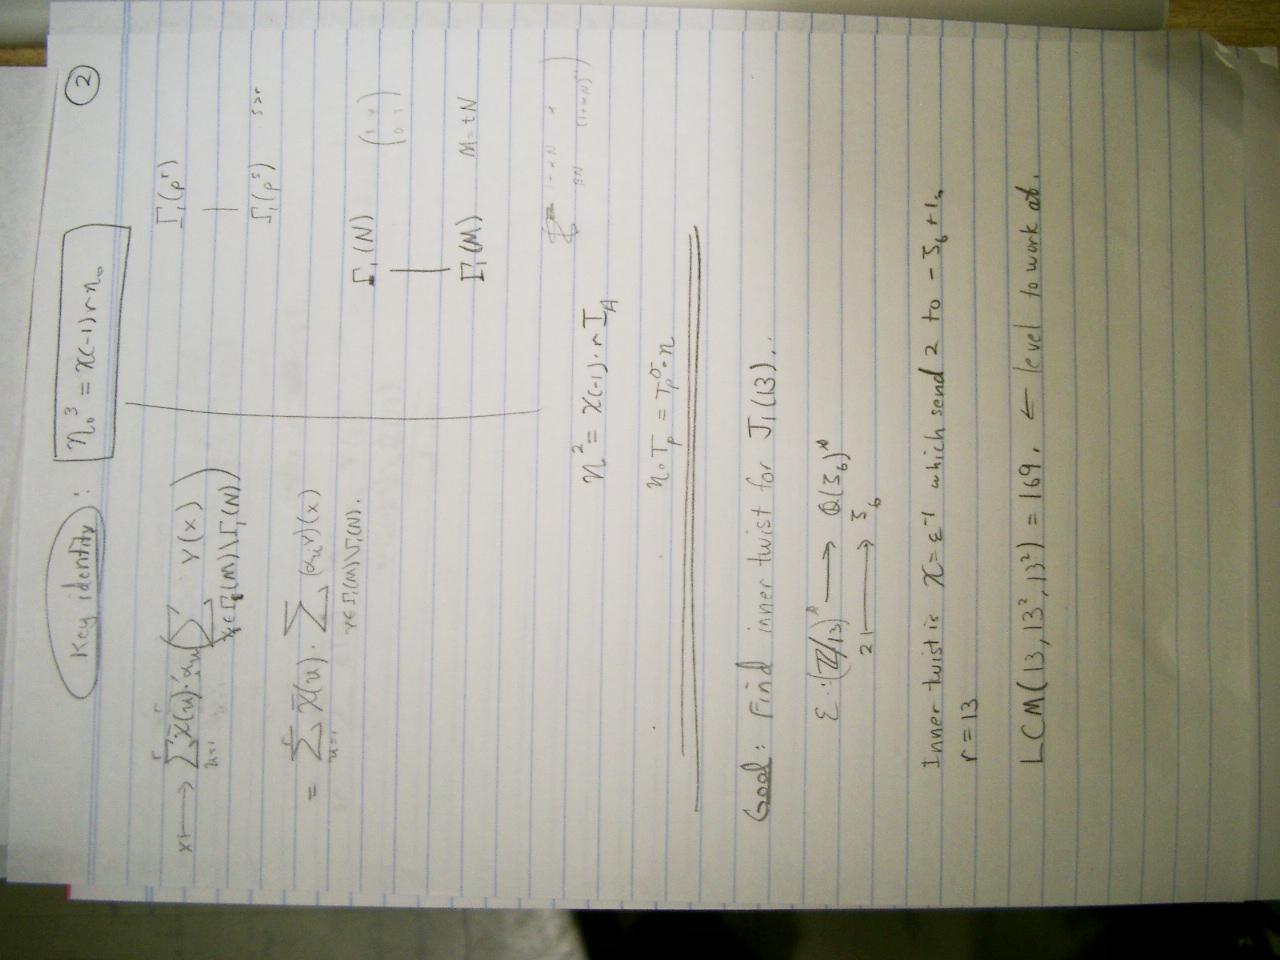 ②
Key identity: η₀³ = χ(-1) r η₀
x ↦ ∑_{u=1}^{r} χ̄(u)·α_u ( ∑_{γ∈Γ₁(M)\Γ₁(N)} γ(x) )
= ∑_{u=1}^{r} χ̄(u) · ∑_{γ∈Γ₁(M)\Γ₁(N)} (α_u γ)(x)
Γ₁(pʳ)
|
Γ₁(pˢ) s>r
Γ₁(N)
|
Γ₁(M) M=tN
η² = χ(-1)·r I_A
η∘T_p = T_p^σ∘η
Goal: Find inner twist for J₁(13)..
ε:(ℤ/13)* ⟶ ℚ(ζ₆)*
2 ⟼ ζ₆
Inner twist is χ=ε⁻¹ which send 2 to -ζ₆+1.
r=13
LCM(13,13²,13²)=169. ← level to work at.